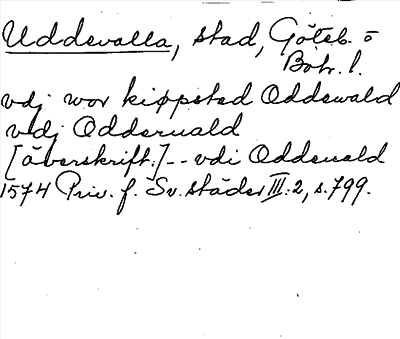 Uddevalla, stad, Göteb. o
Boh. l.
vdj wor kiøpsted Oddewald
vdj Odderuald
[överskrift:] -- vdi Oddeuald
1574 Priv. f. Sv. städer III:2, s. 799.